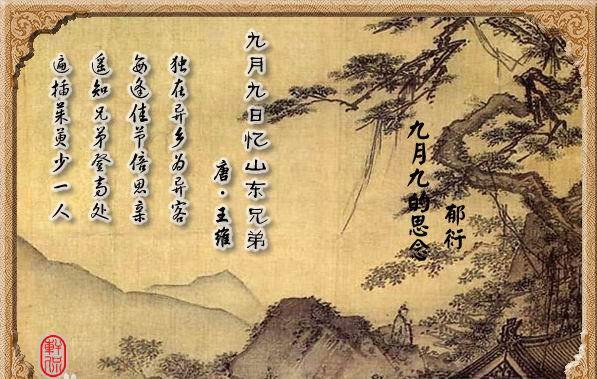 九月九的思念
郁衍
九月九日忆山东兄弟
唐·王维
独在异乡为异客
每逢佳节倍思亲
遥知兄弟登高处
遍插茱萸少一人